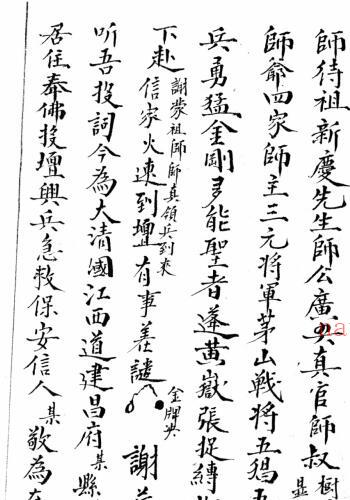 師待祖新慶先生師公廣真官師叔樹
師爺四家師主三元将軍茅山戦将五猖五
兵勇猛金剛多能聖者蓬黄嶽張捉縛
下赴信家火速到壇有事差謴謝
謝蒙祖師師真領兵到来
听吾投詞今為大清國江西道建昌府某縣
居住奉佛投壇興兵急救保安信人某敬為